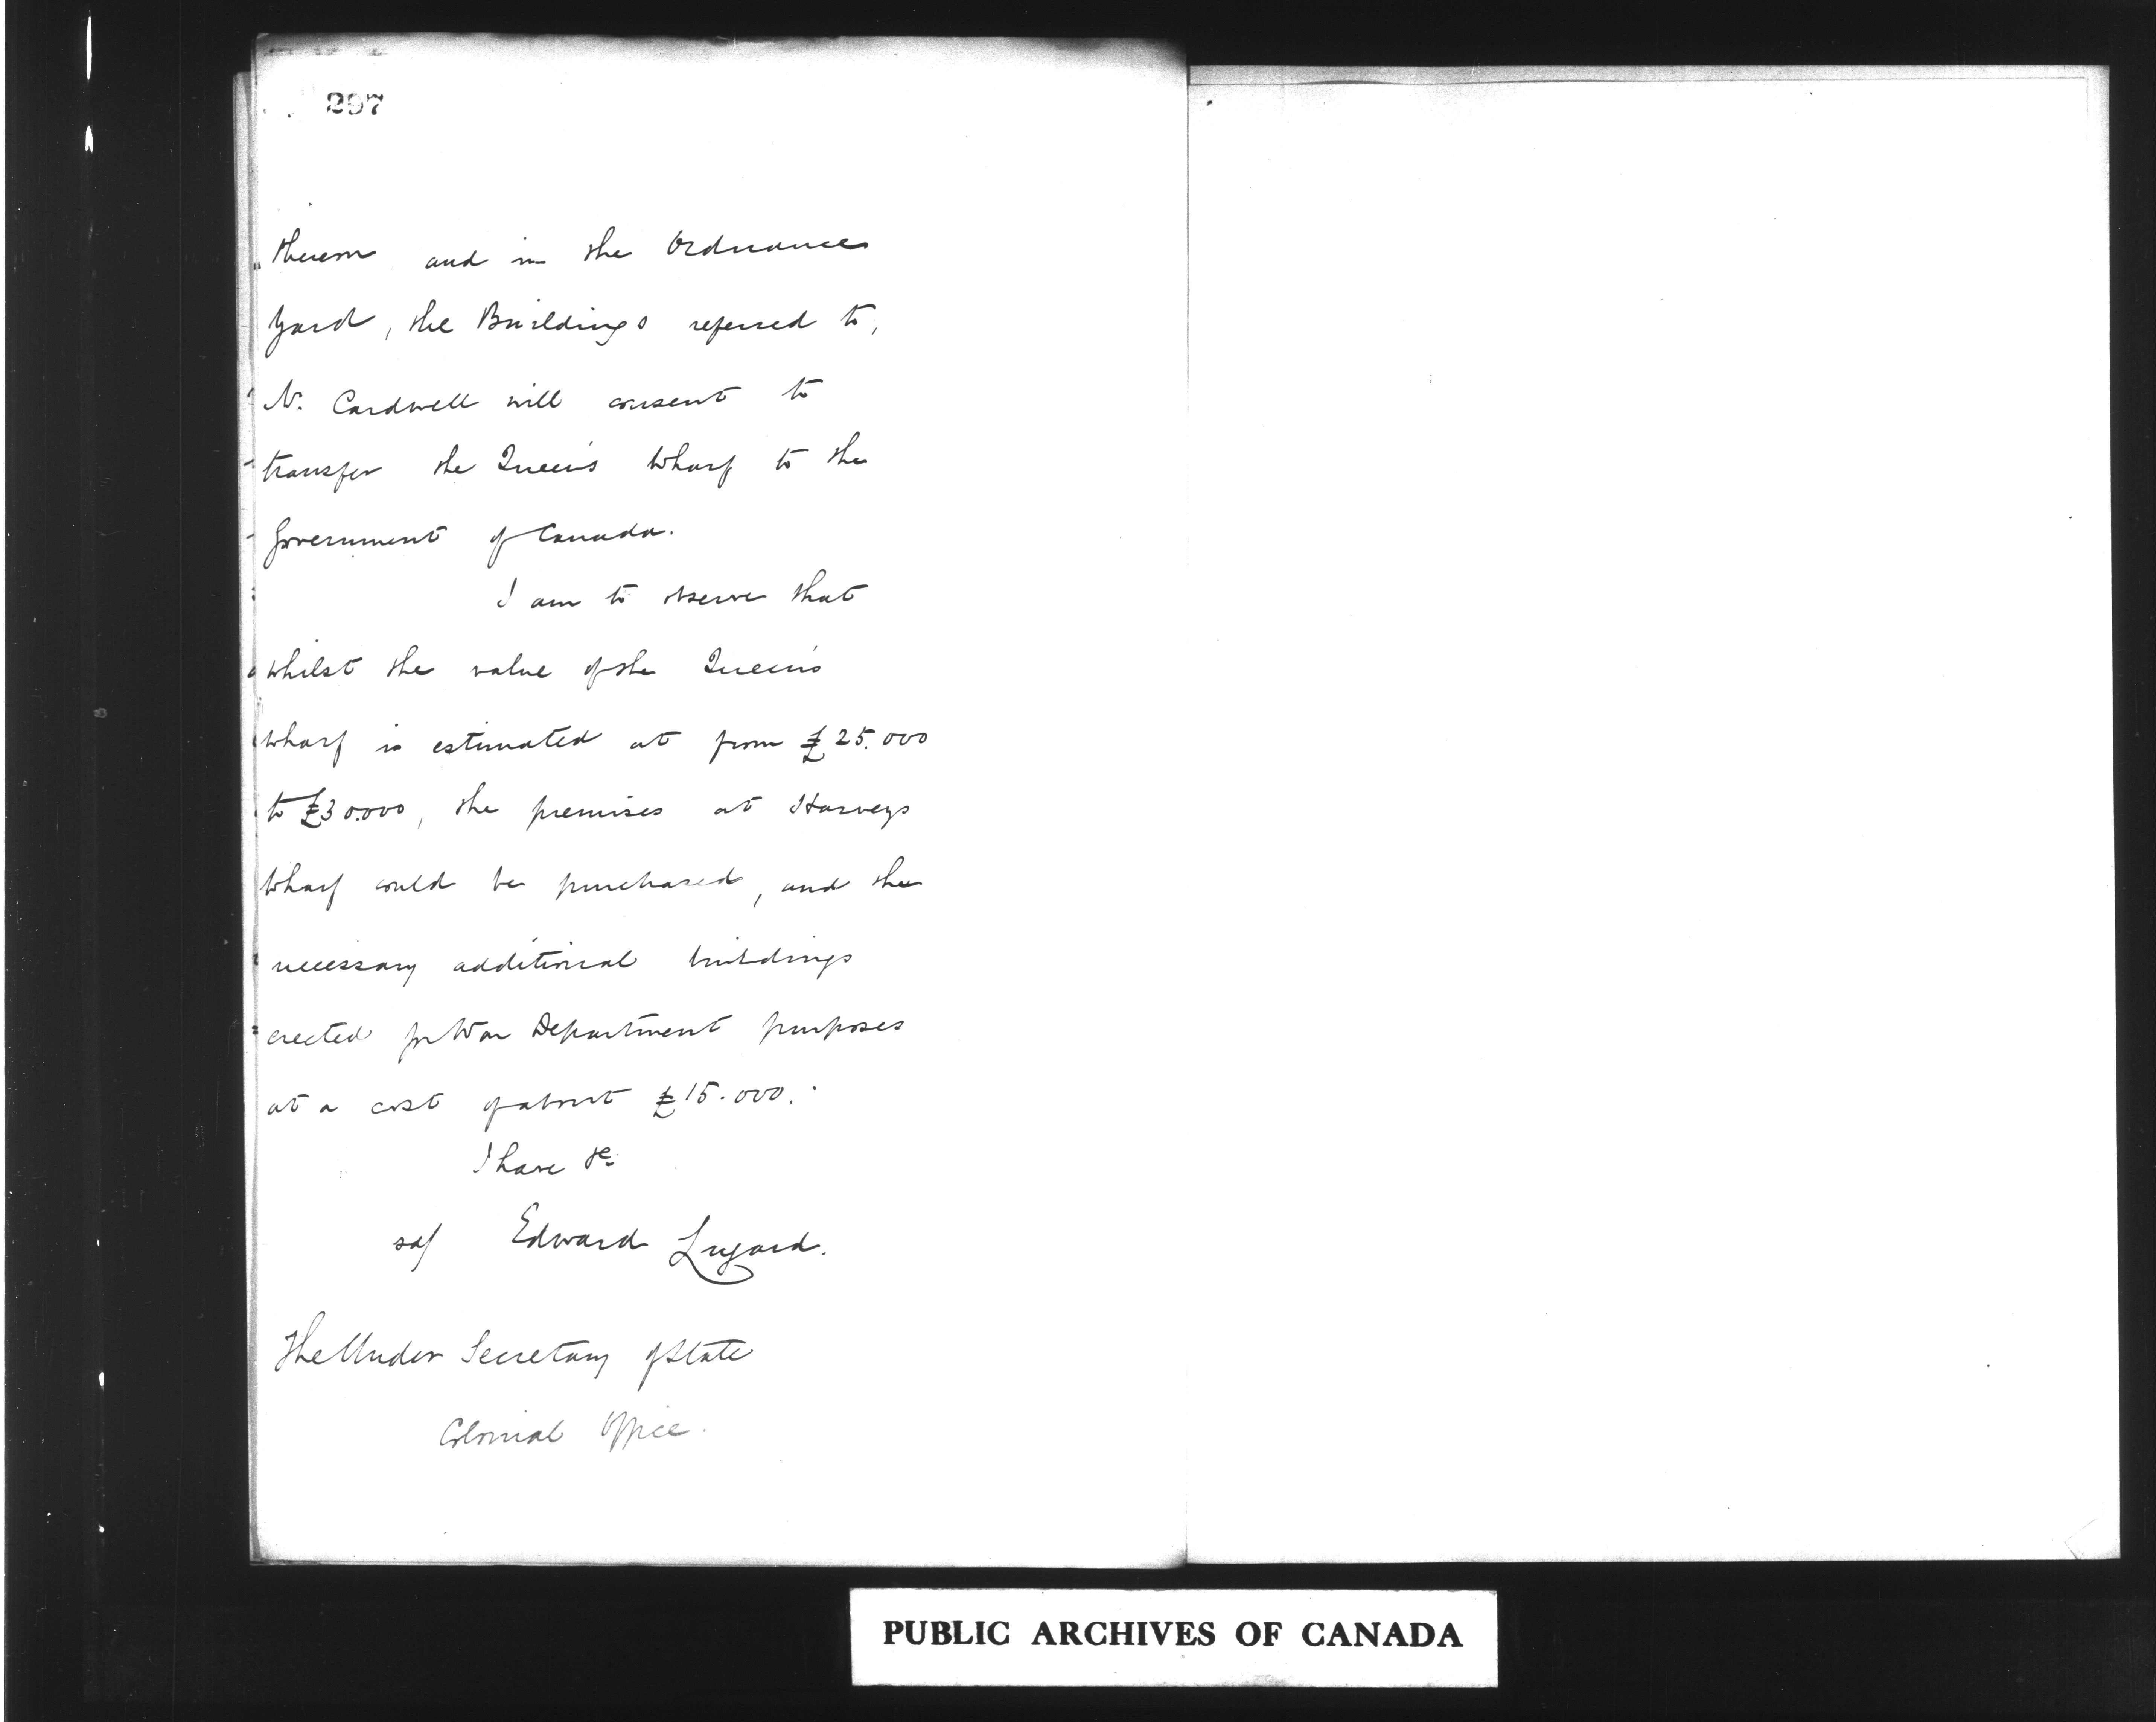 297
thereon and in the Ordnance
Yard, the Buildings referred to,
Mr. Cardwell will consent to
transfer the Queen's Wharf to the
Government of Canada.
I am to observe that
whilst the value of the Queen's
Wharf is estimated at from £25.000
to £30.000, the premises at Harveys
Wharf could be purchased, and the
necessary additional buildings
erected for War Department purposes
at a cost of about £15.000.
I have &c.
sd/ Edward Lugard.
The Under Secretary of State
Colonial Office.
PUBLIC ARCHIVES OF CANADA